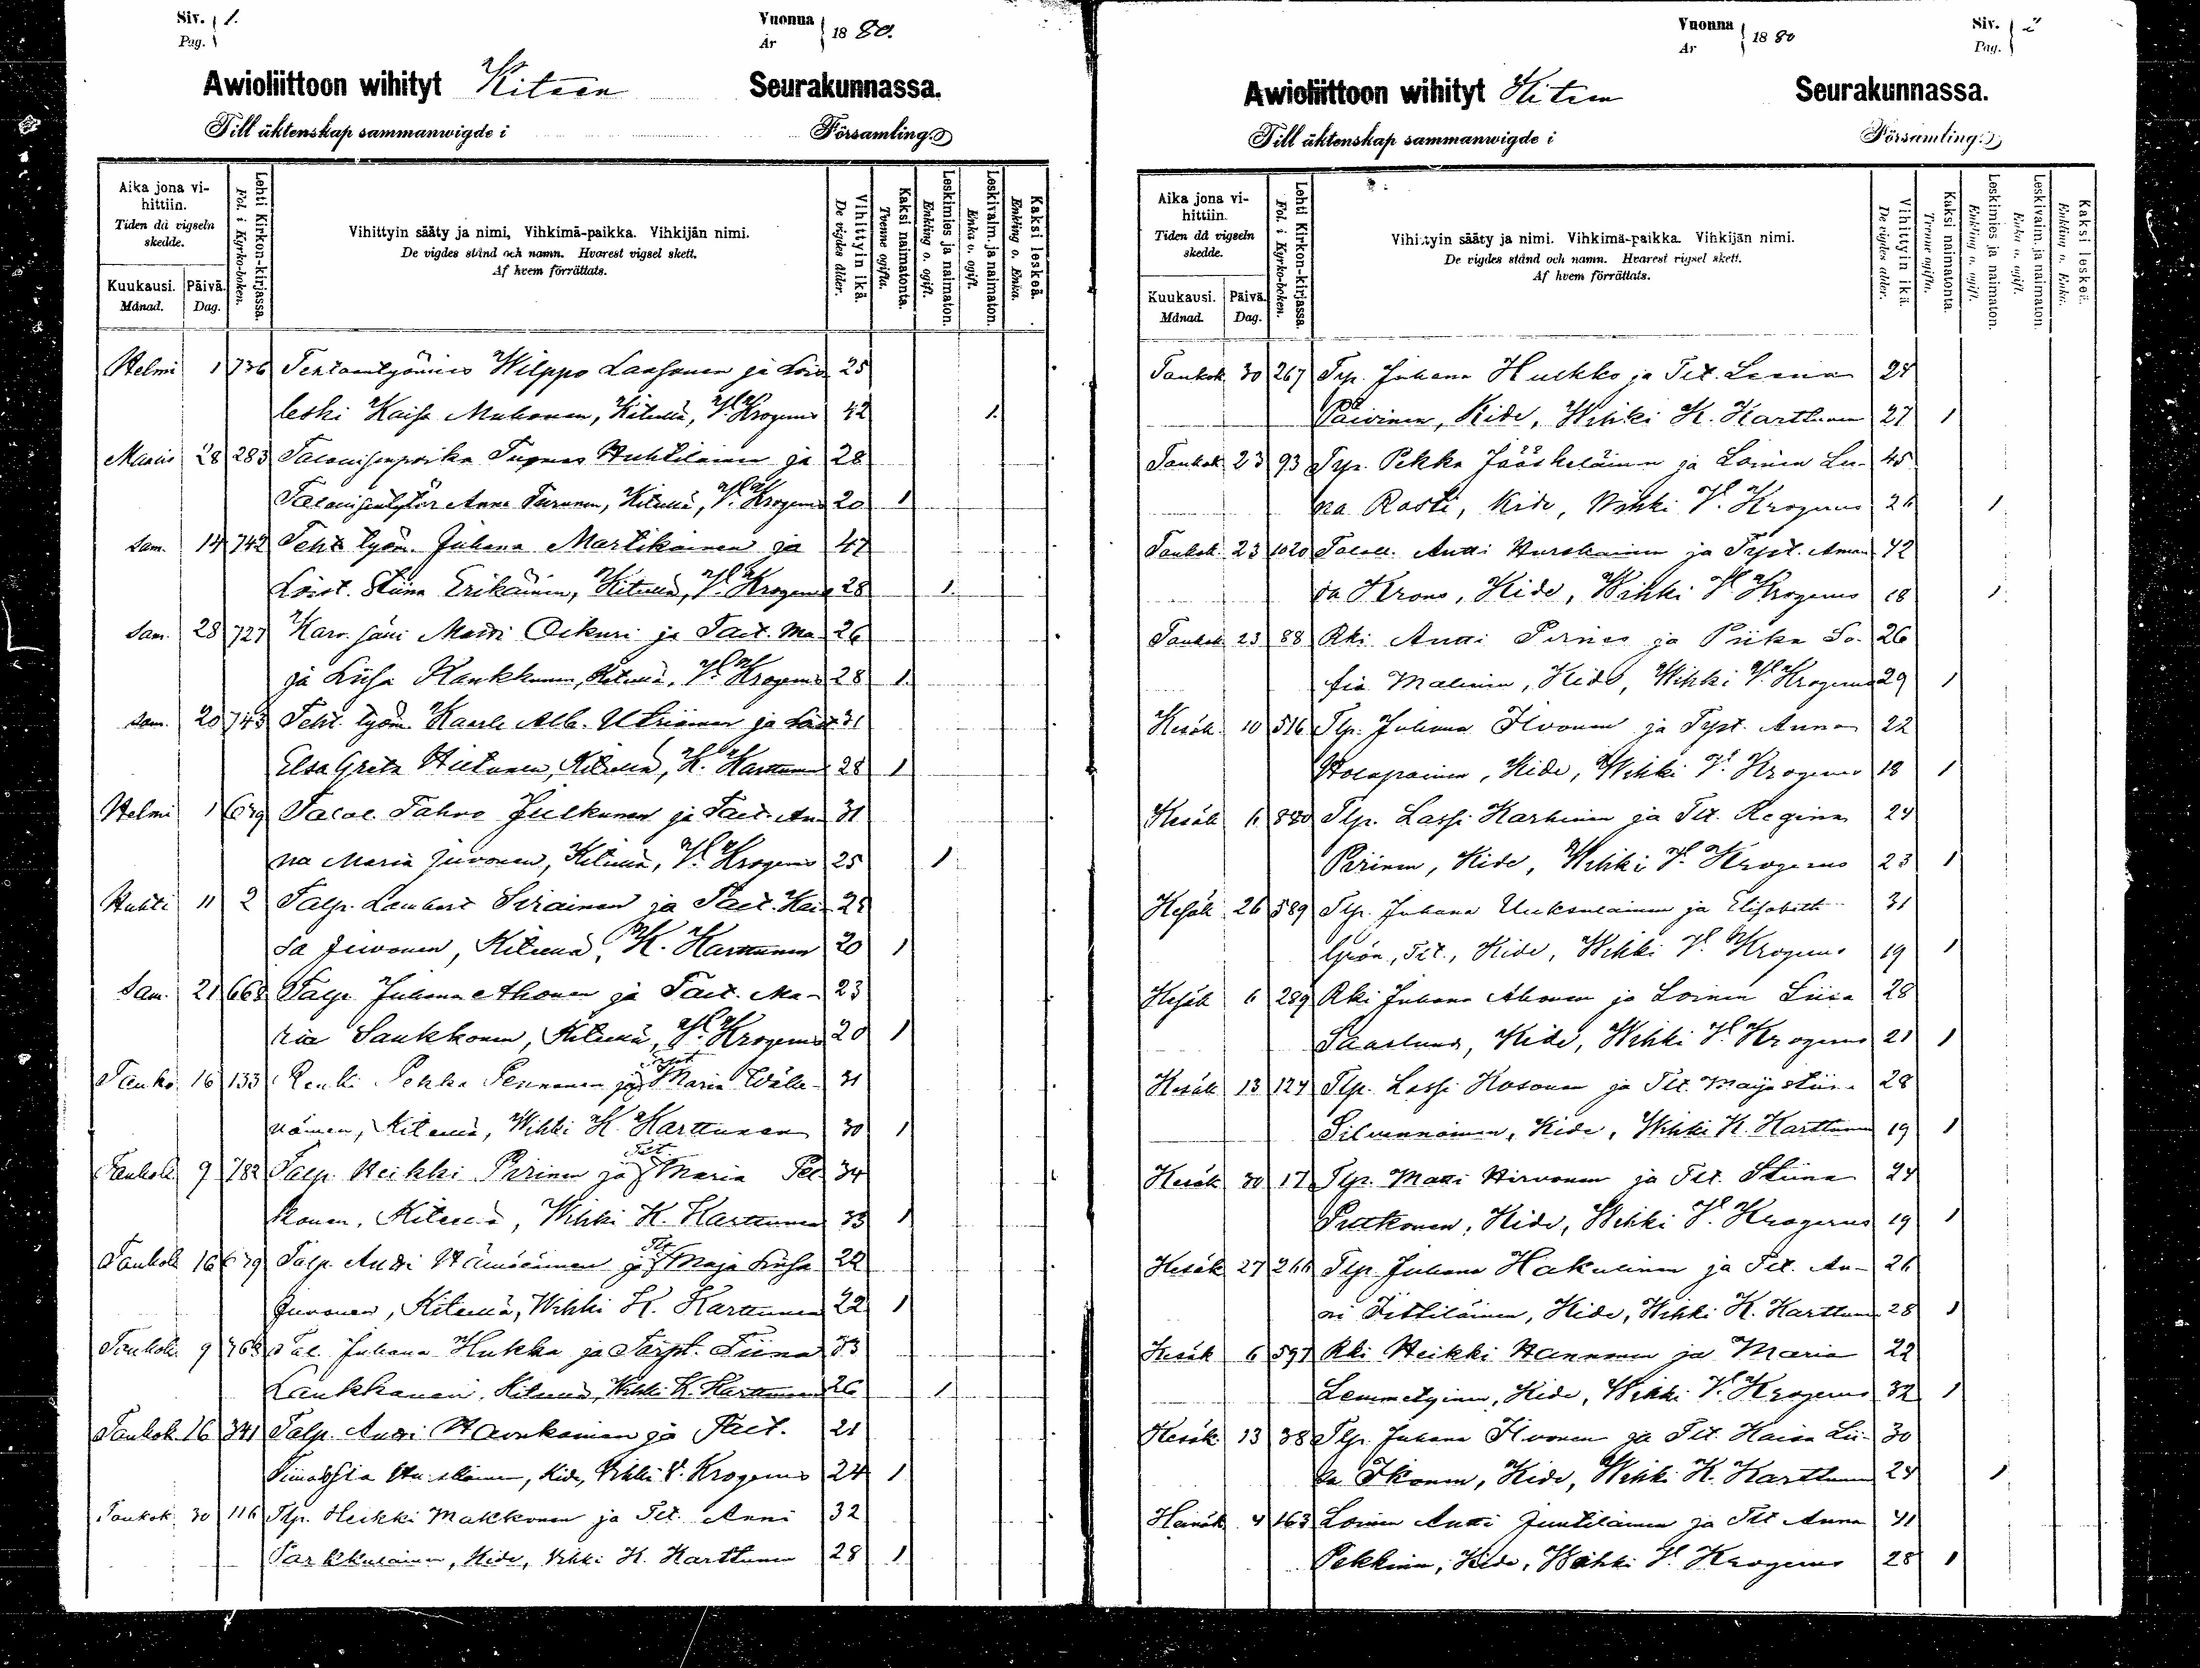 Siv. 1.
Pag.
Vuonna 1880.
År
Awioliittoon wihityt Kiteen Seurakunnassa.
Till äktenskap sammanwigde i Församling.
Aika jona vihittiin.
Tiden då vigseln skedde.
Kuukausi. Månad.
Päivä. Dag.
Lehti Kirkon-kirjassa.
Fol. i Kyrko-boken.
Vihittyin sääty ja nimi, Vihkimä-paikka. Vihkijän nimi.
De vigdes stånd och namn. Hvarest vigsel skett.
Af hvem förrättats.
Vihittyin ikä.
De vigdes ålder.
Kaksi naimatonta.
Tvenne ogifta.
Leskimies ja naimaton.
Enkling o. ogift.
Leskivaim. ja naimaton.
Enka o. ogift.
Kaksi leskeä.
Enkling o. Enka.
Helmi 1 736 Wilppo ja 25
leski Kaisa Muhonen, Kiteellä, V. Krogerus 42 1.
28 283 Huhtilainen ja 28
Anna Turunen, Kiteellä, V. Krogerus 20 1
Sam. 14 742 Teht. työm. Juhana Martikainen ja 47
Loist. Stiina Erikäinen, Kiteellä, V. Krogerus 28 1.
Sam. 28 727 Matti ja Tait. Ma- 26
ja Liisa Kankkunen, Kiteellä, V. Krogerus 28 1.
Sam. 20 743 Teht. työm. Kaarle Alb. Utriainen ja 31
Elsa Greta Hietanen, Kiteellä, K. Karttunen 28 1
Helmi 1 679 Taloll. Tahvo Julkunen ja Tait. An- 31
na Maria Juvonen, Kiteellä, V. Krogerus 25 1
Huhti 11 2 Talp. Sirainen ja Tait. Kai- 28
sa Juvonen, Kiteellä, K. Karttunen 20 1
Sam. 21 668 Talp. Juhana Ahonen ja Tait. Ma- 23
ria Saukkonen, Kiteellä, V. Krogerus 20 1
Touko. 16 133 Renki Pekka Pennanen ja Typt. Maria Wäli- 31
näinen, Kiteellä, Wihki K. Karttunen 30 1
Toukok. 9 782 Talp. Heikki Pirinen ja Tit. Maria Pel- 34
konen, Kiteellä, Wihki K. Karttunen 33 1
Toukok. 16 679 Talp. Antti Hämäläinen ja Tlt. Maja Liisa 22
Juvonen, Kiteellä, Wihki K. Karttunen 22 1
Toukok. 9 Tal. Juhana Hukka ja Tiina 33
Laukkanen, Kiteellä, Wihki K. Karttunen 26 1
Toukok. 16 341 Talp. Antti Havukainen ja Tait. 21
Kide, Wihki V. Krogerus 24 1
Toukok. 30 116 Tlp. Heikki Makkonen ja Tlt. Anni 32
Parkkulainen, Kide, Vihki K. Karttunen 28 1
Siv. 2
Pag.
Vuonna 1880
År
Awioliittoon wihityt Kiteen Seurakunnassa.
Till äktenskap sammanwigde i Församling.
Aika jona vihittiin.
Tiden då vigseln skedde.
Kuukausi. Månad.
Päivä. Dag.
Lehti Kirkon-kirjassa.
Fol. i Kyrko-boken.
Vihittyin sääty ja nimi. Vihkimä-paikka. Vihkijän nimi.
De vigdes stånd och namn. Hvarest vigsel skett.
Af hvem förrättats.
Vihittyin ikä.
De vigdes ålder.
Kaksi naimatonta.
Tvenne ogifta.
Leskimies ja naimaton.
Enkling o. ogift.
Leskivaim. ja naimaton.
Enka o. ogift.
Kaksi leskeä.
Enkling o. Enka.
Toukok. 30 267 Typ. Juhana Hukko ja Tlt. Leena 24
Päivinen, Kide, Wihki K. Karttunen 27 1
Toukok. 23 93 Typ. Pekka Jääskeläinen ja Loinen Lee- 45
na Rasti, Kide, Wihki V. Krogerus 26 1
Toukok. 23 1020 Taloll. Antti Hurskainen ja Typt. Aman- 42
da Krons, Kide, Wihki V. Krogerus 18 1
Toukok. 23 88 Rki Antti Pirnes ja Piika So- 26
fia Malinen, Kide, Wihki V. Krogerus 29 1
Kesäk. 10 516 Tlp. Juhana Ilvonen ja Typt. Anna 22
Holopainen, Kide, Wihki V. Krogerus 18 1
Kesäk. 6 880 Tlp. Lassi Karhinen ja Tlt. Regina 24
Pirinen, Kide, Wihki V. Krogerus 23 1
Kesäk. 26 589 Tlp. Juhana Uuksulainen ja Elisabeth 31
Grön, Tlt., Kide, Wihki V. Krogerus 19 1
Kesäk. 6 289 Rki Juhana Ahonen ja Loinen Liisa 28
Saaslund, Kide, Wihki V. Krogerus 21 1
Kesäk. 13 124 Tlp. Lassi Kosonen ja Tlt. Maija Stiina 28
Silvennoinen, Kide, Wihki K. Karttunen 19 1
Kesäk. 30 17 Tlp. Matti Hirvonen ja Tlt. Stiina 24
Putkonen, Kide, Wihki V. Krogerus 19 1
Kesäk. 27 266 Tlp. Juhana Hakulinen ja Tlt. An- 26
ni Tittiläinen, Kide, Wihki K. Karttunen 28 1
Kesäk. 6 597 Rki Heikki Hannonen ja Maria 22
Lemmetyinen, Kide, Wihki V. Krogerus 32 1
Kesäk. 13 38 Tlp. Juhana Ilvonen ja Tlt. Kaisa Lii- 30
sa Ikonen, Kide, Wihki K. Karttunen 24 1
Heinäk. 4 163 Loinen Antti Juntilainen ja Tlt Anna 41
Pekkinen, Kide, Wihki V. Krogerus 28 1